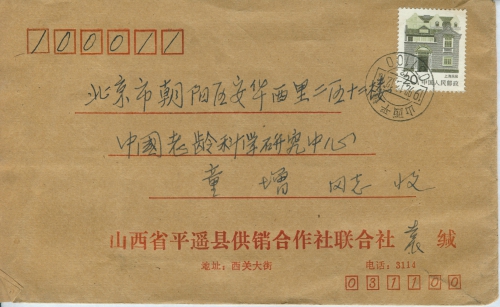 100011
20
中国人民邮政
北京市朝阳区安华西里二区十二楼
中国老龄科学研究中心
童增 同志 收
山西省平遥县供销合作社联合社 袁 缄
地址:西关大街 电话:3114
031100